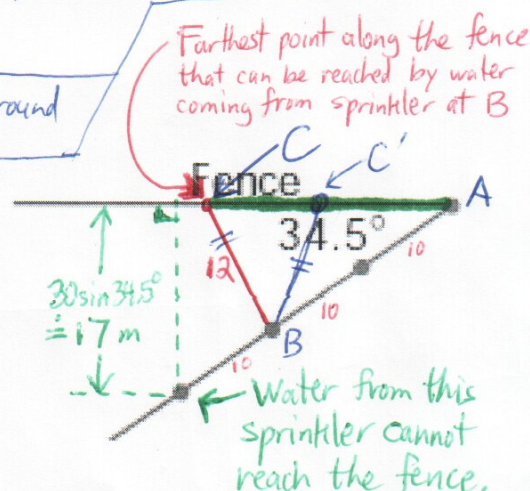 Farthest point along the fence
that can be reached by water
coming from sprinkler at B
round
C
C'
Fence
A
34.5°
12
10
30sin34.5°
≐17 m
10
B
10
Water from this
sprinkler cannot
reach the fence.